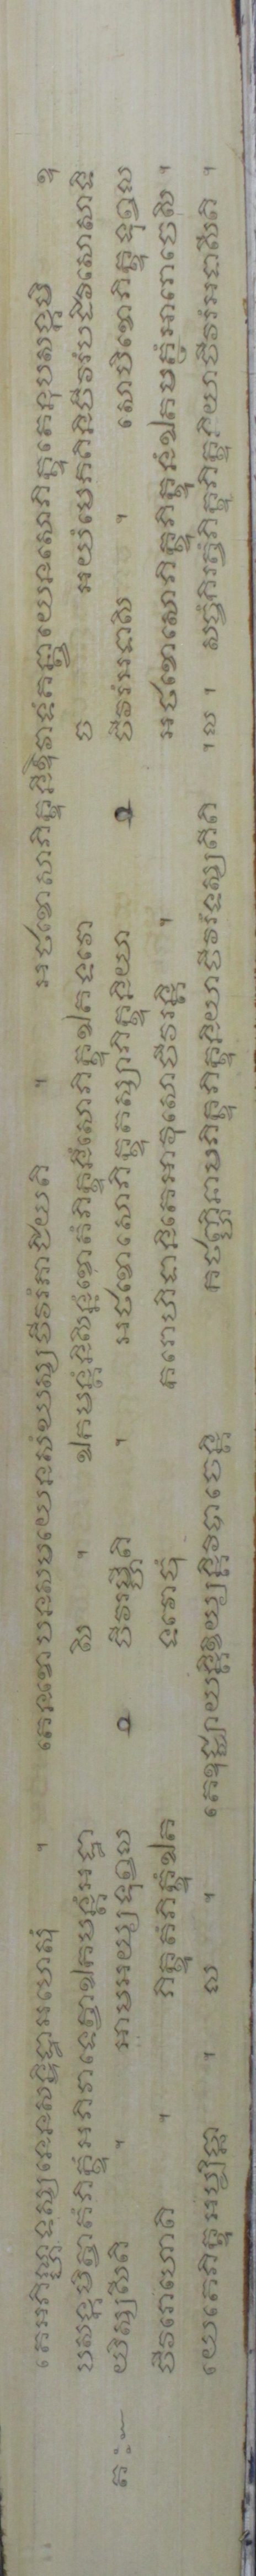 តេអភិណ្ហទស្សនេនសន្ទិដ្ឋាអហេសុំ ។ តេនខោបនសមយេនសំឃស្សចីវរំភាជិយតិ ។ អថខោសាភិក្ខុនីឱវាទំគន្ត្វាយេនសោភិក្ខុតេនុបសង្កមិ ឧ
បសង្កមិត្វាតំភិក្ខុំអភិវាទេត្វាឯកមន្តំអដ្ឋា សិ ។ ឯកមន្តំឋិតំខោតំភិក្ខុនឹសោភិក្ខុឯតទវោ ច អយំមេភគិនិចីវរំបដិវិសោសាទិ
យិស្សសីតិ ។ អាមអយ្យទុព្ពល ចីវរម្ហីតិ ។ អថខោសោភិក្ខុតស្សាភិក្ខុនិយា ចីវរំអទាសិ ។ សោបិខោភិក្ខុទុព្ពល
ចីវរោហោតិ ។ ភិក្ខូតំភិក្ខុំឯត ទវោចុំ ករោហិទានិតេអាវុសោចីវរន្តិ ។ អថខោសោភិក្ខុភិក្ខូនំឯតមត្ថំអារោចេសិ ។
យេតេភិក្ខូអប្បិច្ឆា ។ ល ។ តេឧជ្ឈាយន្តិខិយ្យន្តិវិបាចេន្តិ កថញ្ហិនាមភិក្ខុភិក្ខុនិយាចីវរំទស្សតីតិ ។ ល ។ សច្ចំកិរត្វំភិក្ខុភិក្ខុនិយាចីវរំអទាសីតិ ។